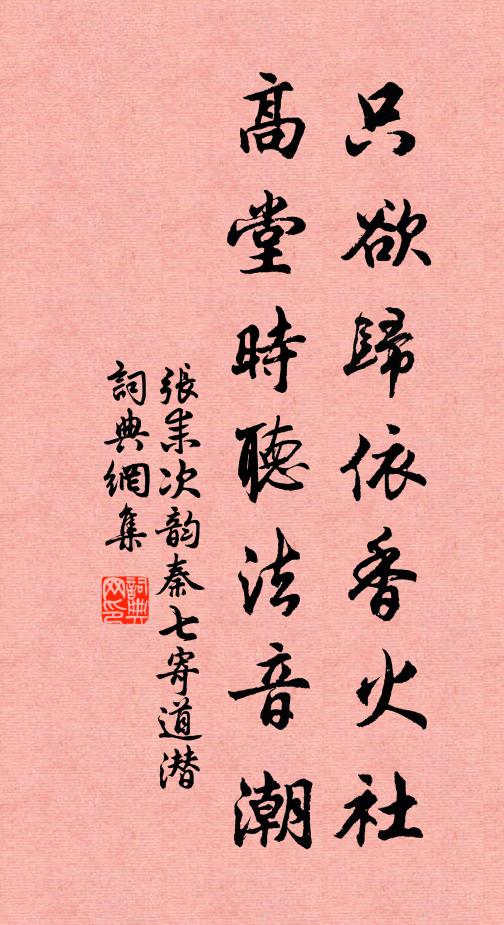 只欲歸依香火社
高堂時聽法音潮
張耒次韵秦七寄道潜
詞典網集
詞典
网印